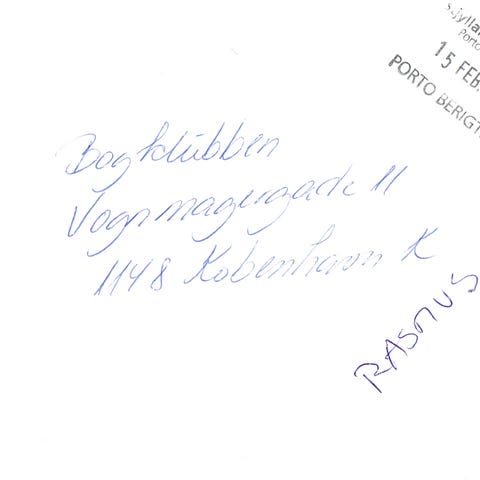 Sjylla
Porto
15 FEB.
PORTO BERIGT
Bogklubben
Vognmagergade 11
1148 København K
RASMUS